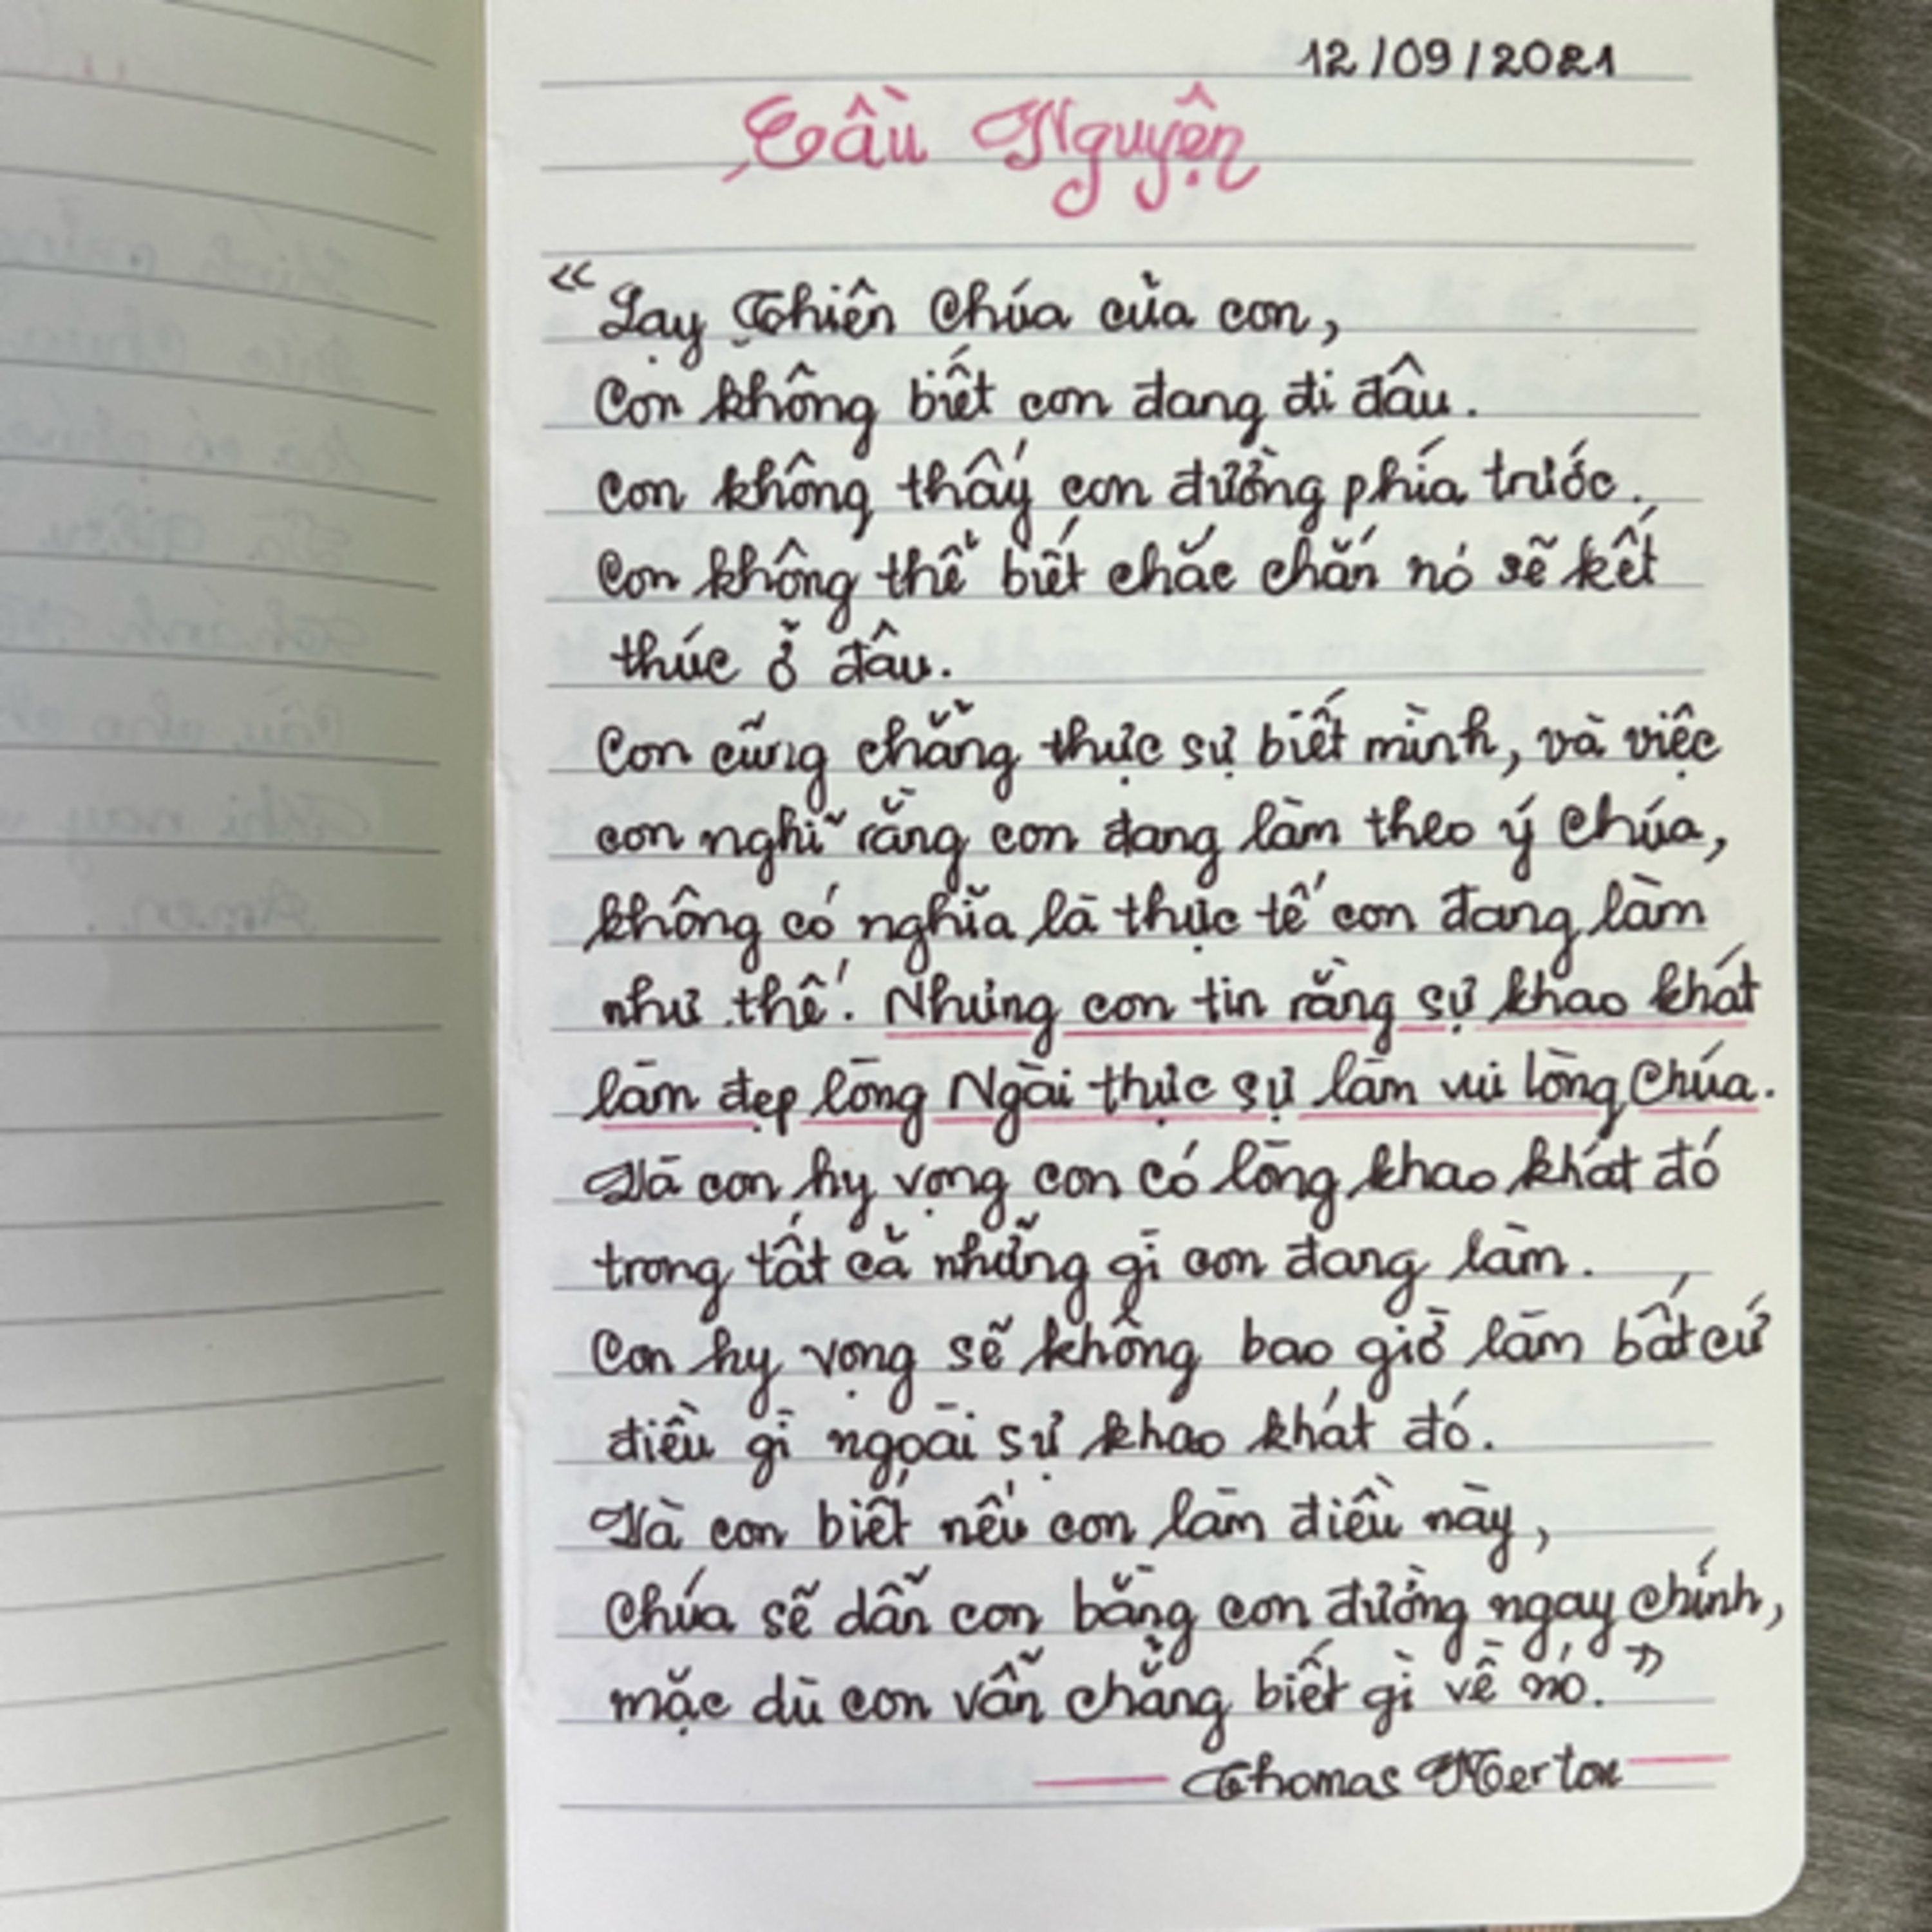 12/09/2021
Cầu Nguyện
“Lạy Thiên Chúa của con,
Con không biết con đang đi đâu.
Con không thấy con đường phía trước.
Con không thể biết chắc chắn nó sẽ kết
thúc ở đâu.
Con cũng chẳng thực sự biết mình, và việc
con nghĩ rằng con đang làm theo ý Chúa,
không có nghĩa là thực tế con đang làm
như thế. Nhưng con tin rằng sự khao khát
làm đẹp lòng Ngài thực sự làm vui lòng Chúa.
Và con hy vọng con có lòng khao khát đó
trong tất cả những gì con đang làm.
Con hy vọng sẽ không bao giờ làm bất cứ
điều gì ngoài sự khao khát đó.
Và con biết nếu con làm điều này,
Chúa sẽ dẫn con bằng con đường ngay chính,
mặc dù con vẫn chẳng biết gì về nó.”
Thomas Merton